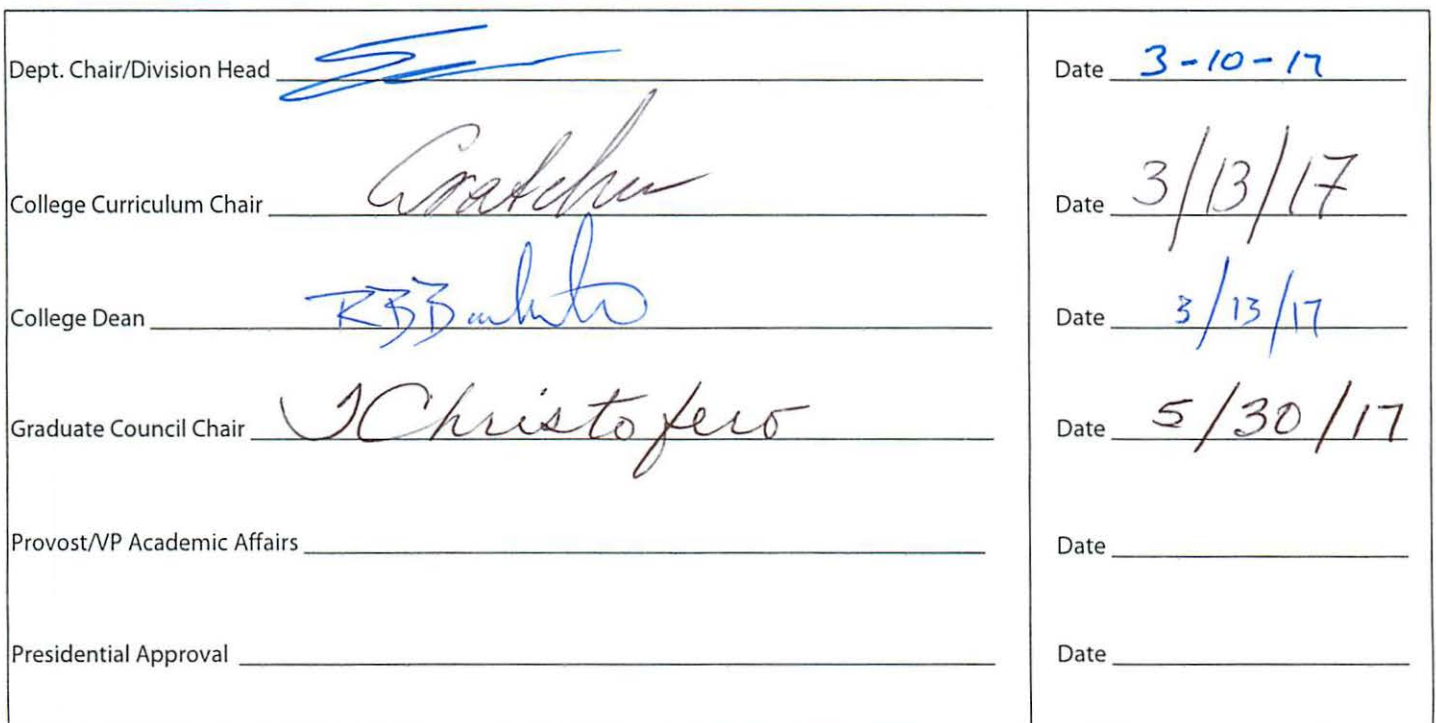 Dept. Chair/Division Head Date 3-10-17
College Curriculum Chair Date 3/13/17
College Dean Date 3/13/17
Graduate Council Chair JChristofero Date 5/30/17
Provost/VP Academic Affairs Date
Presidential Approval Date